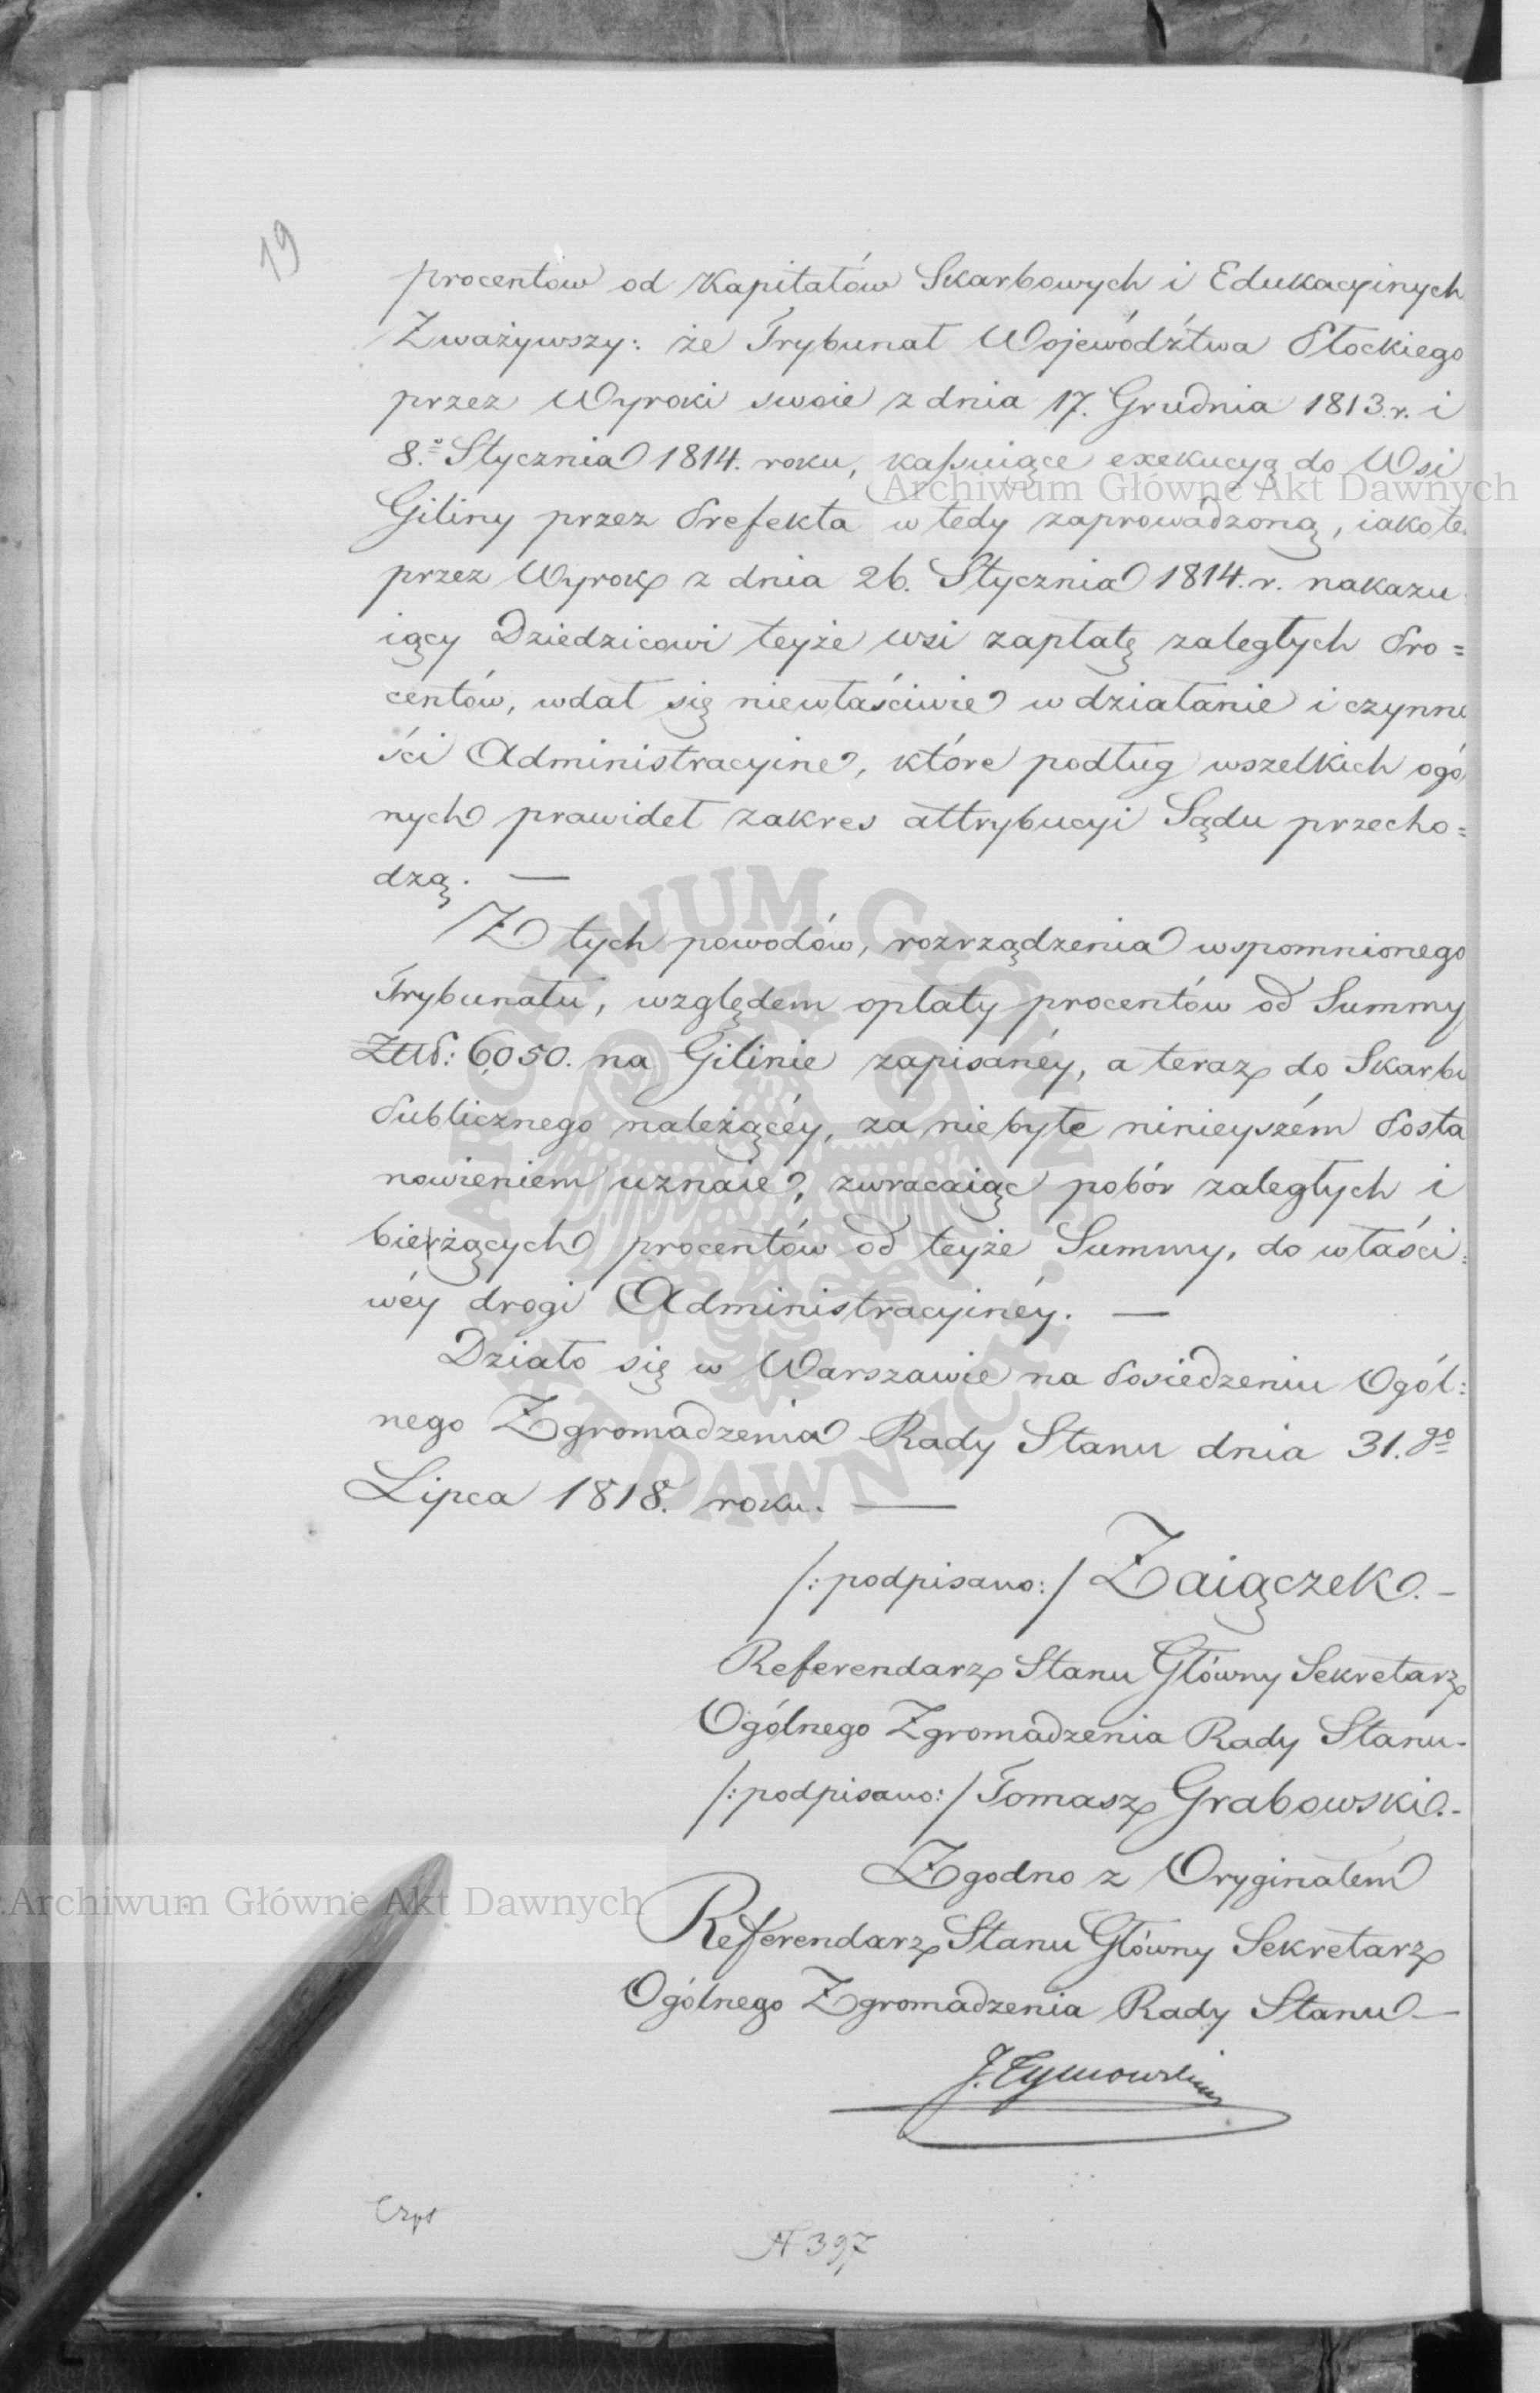 19
procentow od Kapitałów Skarbowych i Edukacyinych
Zważywszy: że Trybunał Wojewódźtwa Płockiego
przez Wyroki swoie z dnia 17. Grudnia 1813.r. i
8.º Stycznia 1814. roku, kassuiące exekucyą do Wsi
Archiwum Główne Akt Dawnych
Giliny przez Prefekta wtedy zaprowadzoną, iakote
przez Wyrok z dnia 26. Stycznia 1814.r. nakazu
iący Dziedzicowi teyże wsi zapłatę zaległych Pro=
centów, wdał się niewłaściwie w działanie i czynno
ści Administracyine, które podług wszelkich ogó
nych prawideł zakres attrybucyi Sądu przecho=
dzą. —
Z tych powodów, rozrządzenia wspomnionego
Trybunału, względem opłaty procentów od Summy
Złł: 6,050. na Gilinie zapisanéy, a teraz do Skarbu
Publicznego należącéy, za niebyłe ninieyszém Posta
nowieniem uznaie, zwracaiąc pobór zaległych i
bieżących procentów od teyże Summy, do właści:
wéy drogi Administracyinéy. —
Działo się w Warszawie na Posiedzeniu Ogól:
nego Zgromadzenia Rady Stanu dnia 31.go
Lipca 1818. roku. —
/:podpisano:/ Zaiączek. –
Referendarz Stanu Główny Sekretarz
Ogólnego Zgromadzenia Rady Stanu-
/:podpisano:/ Tomasz Grabowski.-
Zgodno z Oryginałem
Archiwum Główne Akt Dawnych
Referendarz Stanu Główny Sekretarz
Ogólnego Zgromadzenia Rady Stanu—
J. Tymowski
N 397
ARCHIWUM GŁÓWNE AKT DAWNYCH